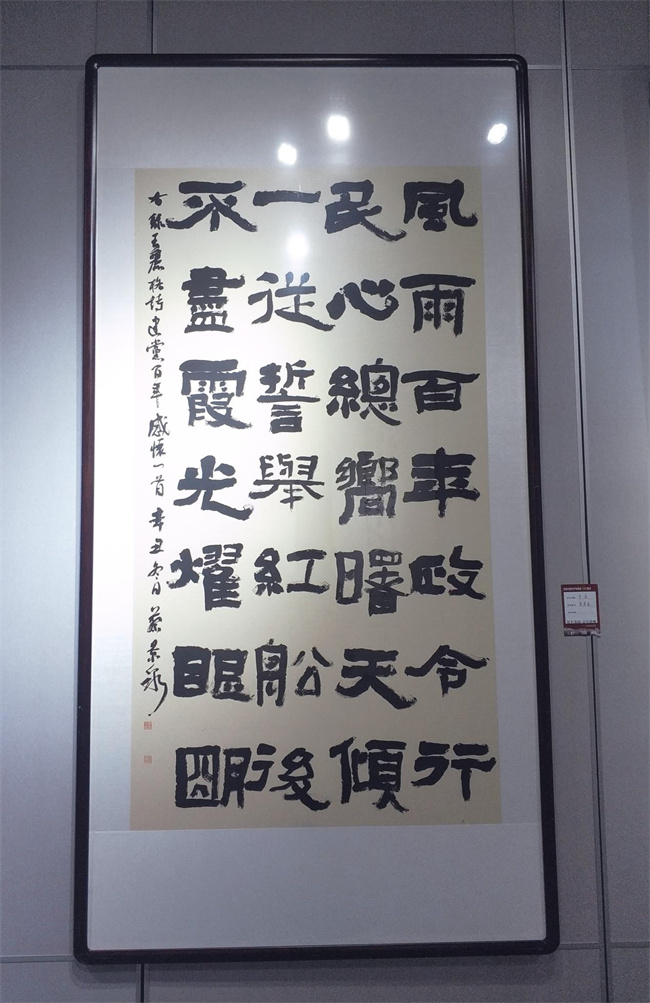 風雨百年政令行
民心總嚮曙天傾
一從誓舉紅船後
不盡霞光耀朙
右錄詩建黨百年感懷一首 辛丑冬日 蔡景